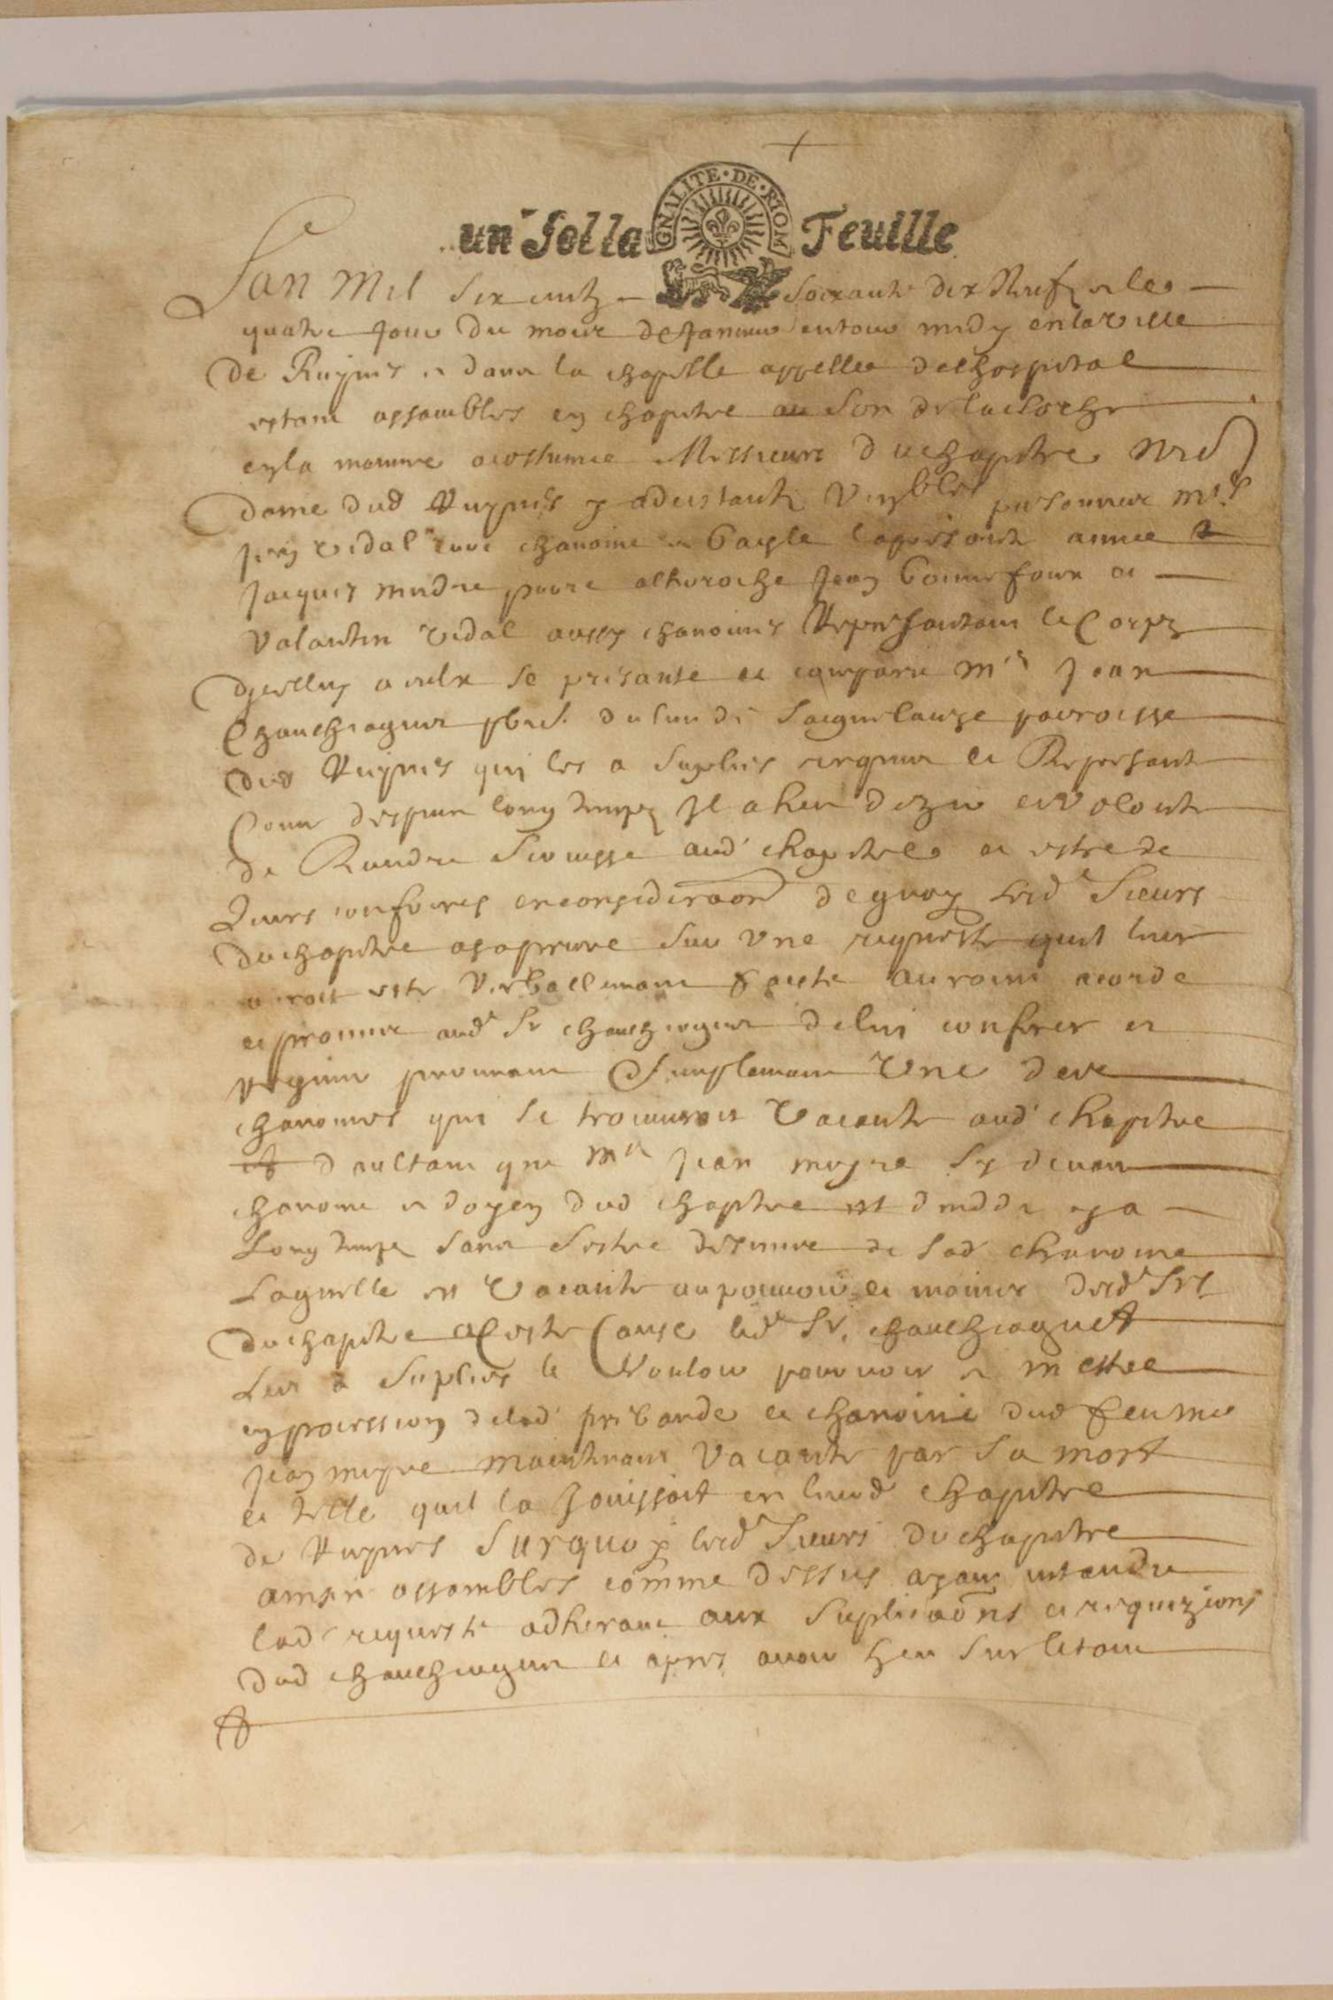 un Sol la Feuille
GNALITE·DE·RIOM
Lan Mil six centz soixante dix Neuf et le
quatre jour du mois de Janvier entour midy en la ville
de Ruynes et dans la chapelle appellee de lhospital
estant assambles en chapitre au son de la cloche
en la maniere acostumee Messieurs du chapitre
dame dud Ruynes y adcistantz personnes Mrs
Jean Vidal curé chanoine et bayle la presante annee
Jacques prire Jean et
Valantin Vidal aussy chanoines Represantant le Corps
dicelluy a eulx se presante et comparu Mr Jean
Chauchiaguet pbre du lieu de parroisse
dud Ruynes qui les a suplies requerir et Represante
Comme despuis long temps Il a heu dezir et Volonte
de Randre Service aud chapitre et estre de
leurs confreres en consideraon de quoy lesd Sieurs
du chapitre sur Une requeste quil leur
auroit este Verballemant faicte auroint acorde
et promis aud Sr chauchiaguet de lui conferer et
puremant Simplemant Une des
chanoines qui se trouveroit Vacante aud chapitre
daultant que Mr Jean
chanoine et doyen dud chapitre est decedde y a
Long temps sans sestre desmire de lad chanoine
Laquelle est Vacante au pouvoir et mains desd Srs
du chapitre A Ceste Cause led Sr chauchiaguet
Les a suplies le Vouloir pourvoir et mettre
en pocession de lad prebande et chanoine dud feu Mre
Jean maintenant Vacante par sa mort
et telle quil la Jouissoit en lieud chapitre
de Ruynes Surquoy lesd Sieurs du chapitre
ainsin assambles comme dessus ayant entandu
lad requeste adherant aux Suplicaons et requizions
dud chauchiaguet et apres avoir heu sur le tout